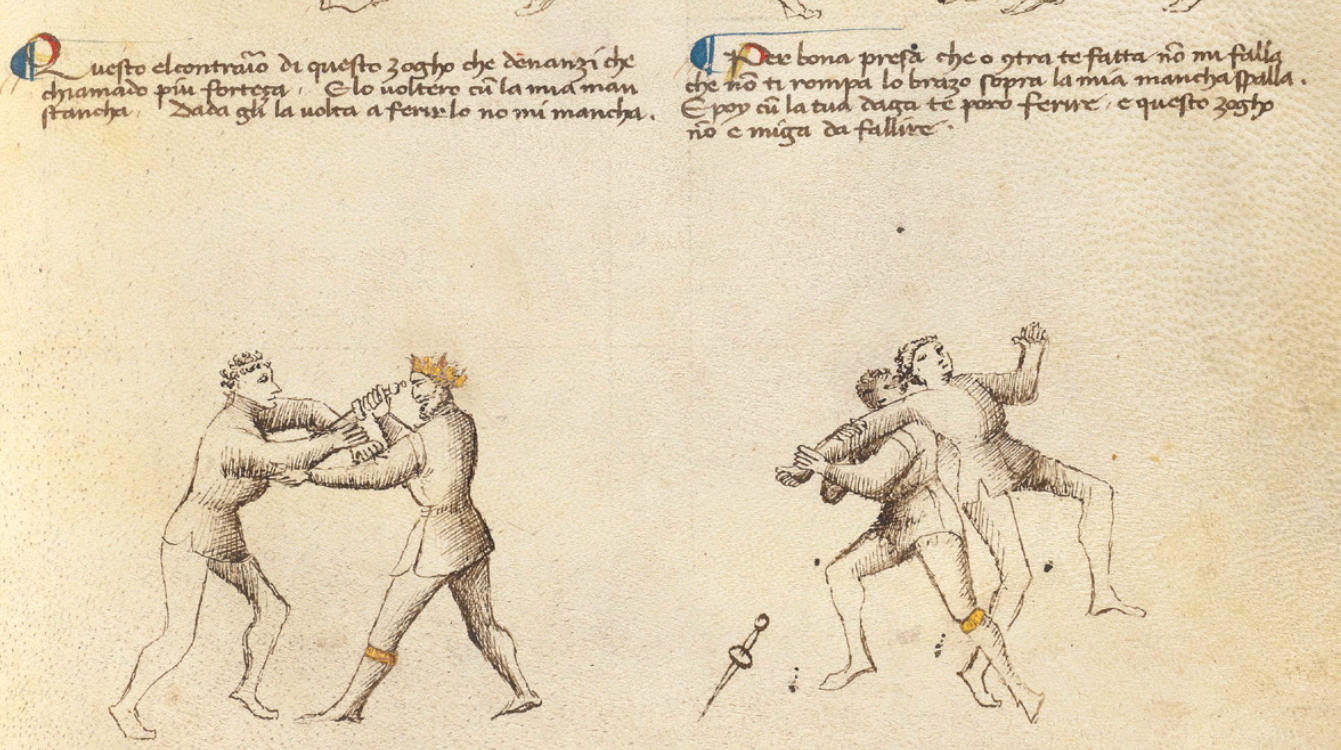 Questo el contraro di questo zogho che denanzi che
chiamado piu forteza. E lo voltero cu la mia man
stancha. Dada gli la volta a ferirlo no mi mancha.
Per bona presa che o 9tra te fatta no mi falla
che no ti rompa lo brazo sopra la mia mancha spalla.
E poy cu la tua daga te poro ferire, e questo zogho
no e miga da fallire.